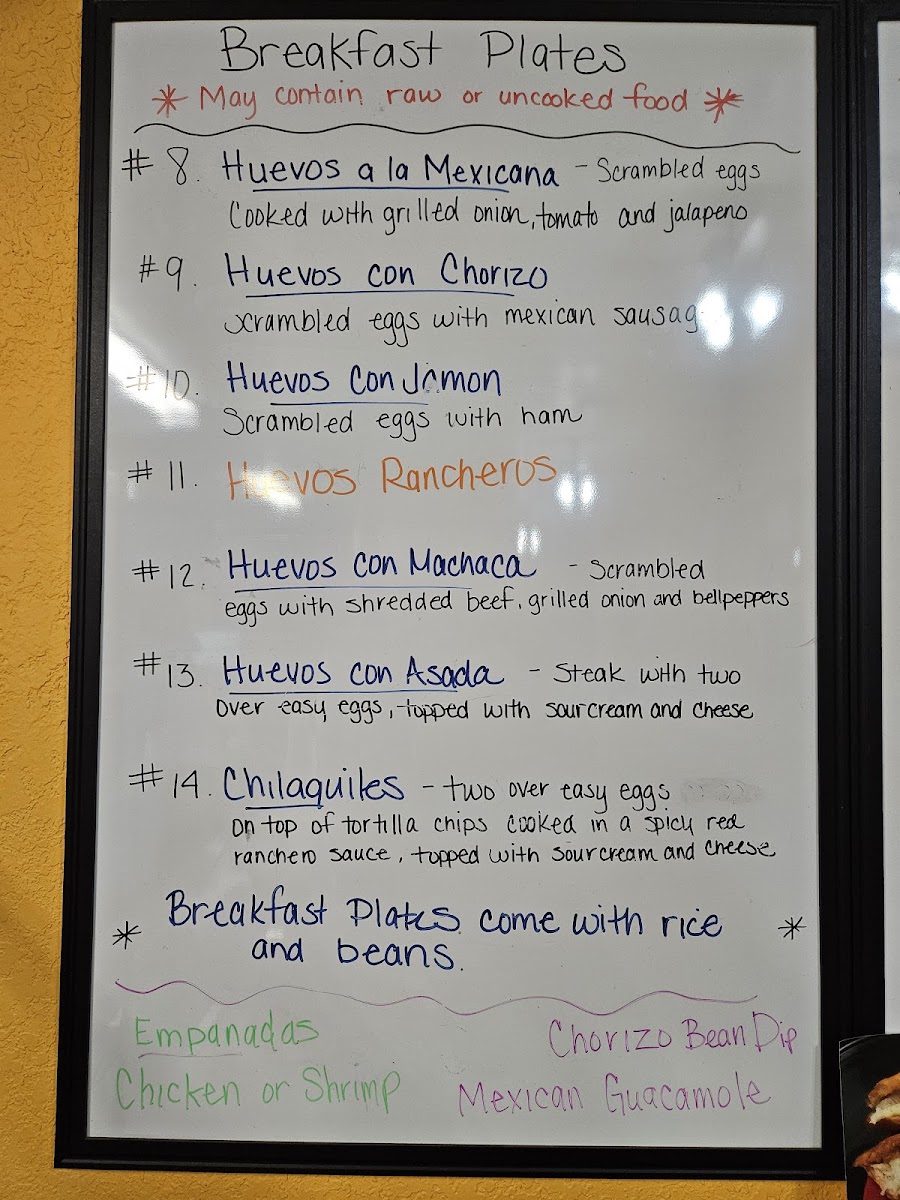 Breakfast Plates
* May contain raw or uncooked food *
# 8. Huevos a la Mexicana - Scrambled eggs
Cooked with grilled onion, tomato and jalapeno
#9. Huevos con Chorizo
scrambled eggs with mexican sausag
#10. Huevos con Jamon
Scrambled eggs with ham
# 11. Huevos Rancheros
#12. Huevos con Machaca - Scrambled
eggs with shredded beef, grilled onion and bellpeppers
#13. Huevos con Asada - Steak with two
over easy eggs, topped with sourcream and cheese
#14. Chilaquiles - two over easy eggs
on top of tortilla chips cooked in a spicy red
ranchero sauce, topped with sourcream and cheese
* Breakfast Plates come with rice *
and beans.
Empanadas
Chicken or Shrimp
Chorizo Bean Dip
Mexican Guacamole